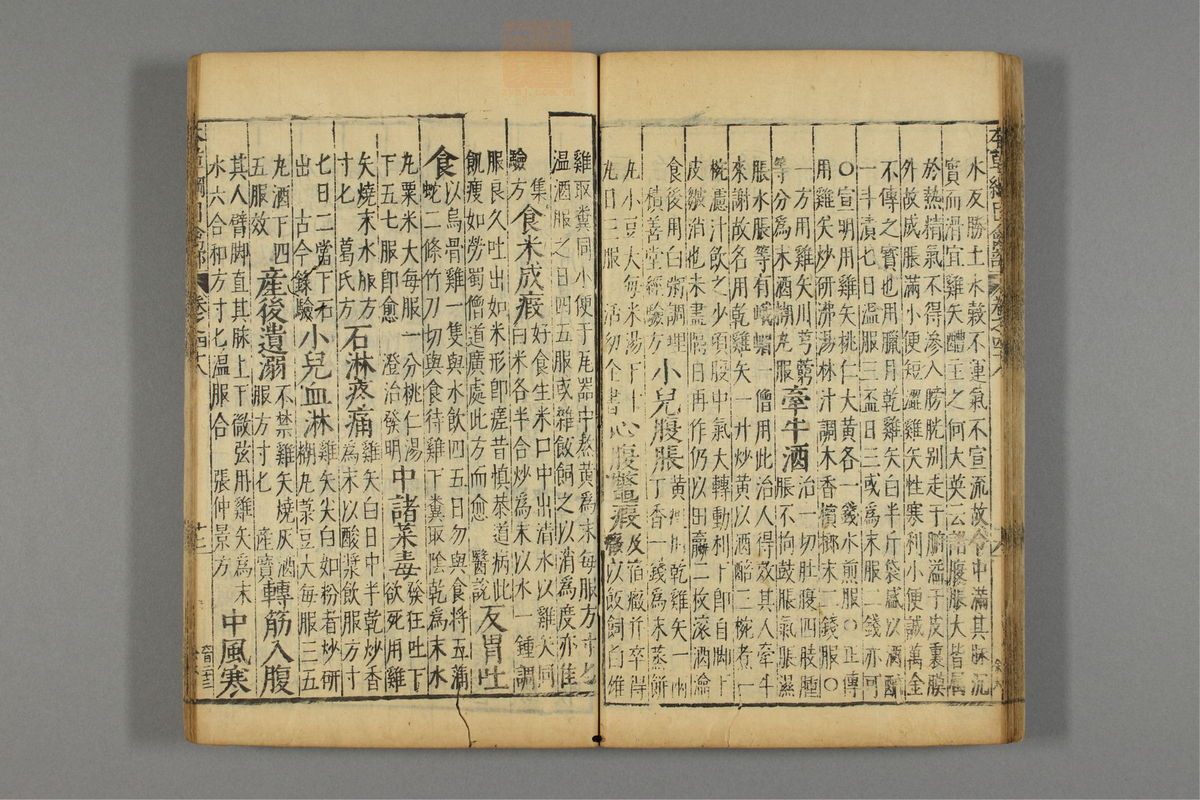 水反勝土水穀不運氣不宣流故令中滿其脉沉
實而滑宜雞矢醴主之何大英云諸腹脹大皆屬
於熱精氣不得滲入膀胱别走于腑溢于皮裏膜
外故成脹滿小便短澀雞矢性寒利小便誠萬金
不傳之寶也用臘月乾雞矢白半斤袋盛以酒醅
一斗漬七日温服三盃日三或爲末服二錢亦可
○宣明用雞矢桃仁大黃各一錢水煎服○正傳
用雞矢炒研沸湯淋汁調木香檳榔末二錢服○
一方用雞矢川芎䓖
等分爲末酒糊丸服
牽牛酒
治一切肚腹四肢腫
脹不拘鼓脹氣脹濕
脹水脹等有峨嵋一僧用此治人得效其人牽牛
來謝故名用乾雞矢一升炒黃以酒醅三椀煮一
椀濾汁飲之少頃腹中氣大轉動利下即自脚下
皮皺消也未盡隔日再作仍以田螺二枚滚酒瀹
食後用白粥調理
積善堂經驗方
小兒腹脹
黃雌乾雞矢一兩
丁香一錢爲末蒸餅
丸小豆大每米湯下十
丸日三服 活幼全書
心腹鱉瘕
及宿癥并卒
以飯飼白雄
雞取糞同小便于瓦器中熬黃爲末每服方寸匕
温酒服之日四五服或雜飯飼之以消爲度亦佳
集
驗方
食米成瘕
好食生米口中出清水以雞矢同
白米各半合炒爲末以水一鍾調
服良久吐出如米形即瘥昔慎恭道病此
飢瘦如勞蜀僧道廣處此方而愈 醫説
反胃吐
食
以烏骨雞一隻與水飲四五日勿與食將五蒲
蛇二條竹刀切與食待雞下糞取陰乾爲末水
丸粟米大每服一分桃仁湯
下五七服即愈 澄治發明
中諸菜毒
發狂吐下
欲死用雞
矢燒末水服方
寸匕 葛氏方
石淋疼痛
雞矢白日中半乾炒香
爲末以酸漿飲服方寸
七日二當下石
出 古今録驗
小兒血淋
雞矢尖白如粉者炒研
糊丸菉豆大每服三五
丸酒下四
五服效
産後遺溺
不禁雞矢燒灰酒
服方寸匕 産寶
轉筋入腹
其人臂脚直其脉上下微弦用雞矢爲末
水六合和方寸匕温服合 張仲景方
中風寒